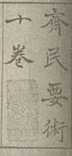 齊民要術
十卷